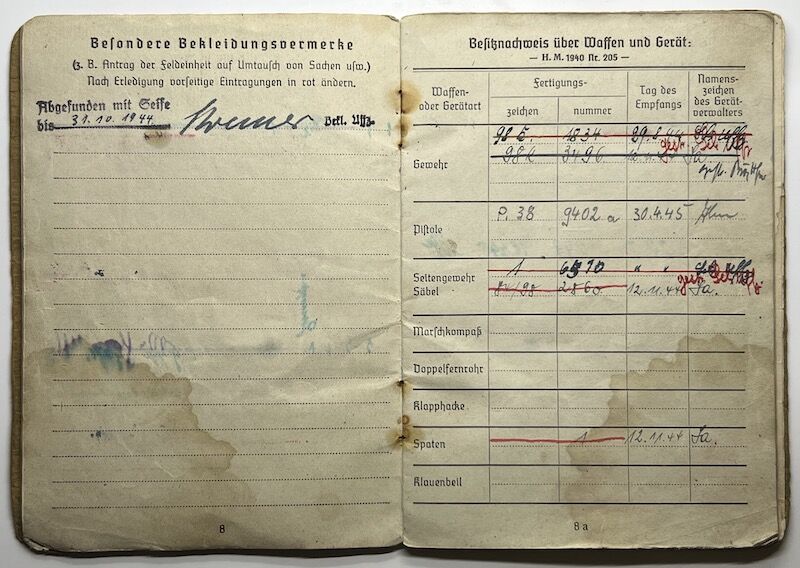 Besondere Bekleidungsvermerke
(z. B. Antrag der Feldeinheit auf Umtausch von Sachen usw.)
Nach Erledigung vorseitige Eintragungen in rot ändern.
Abgefunden mit Seife
bis 31.10.1944. Bekl. Uffz.
8
Besitznachweis über Waffen und Gerät:
— H. M. 1940 Nr. 205 —
Waffen- oder Gerätart
Fertigungs-
zeichen
nummer
Tag des Empfangs
Namens- zeichen des Gerät- verwalters
Gewehr
1834 29.8.44
98k 3496 12.11.44 Ja.
Pistole P. 38 9402 a 30.4.45
Seitengewehr 1 " "
Säbel 84/98 2860 12.11.44 Ja.
Marschkompaß
Doppelfernrohr
Klapphacke
Spaten 1 12.11.44 Ja.
Klauenbeil
8a